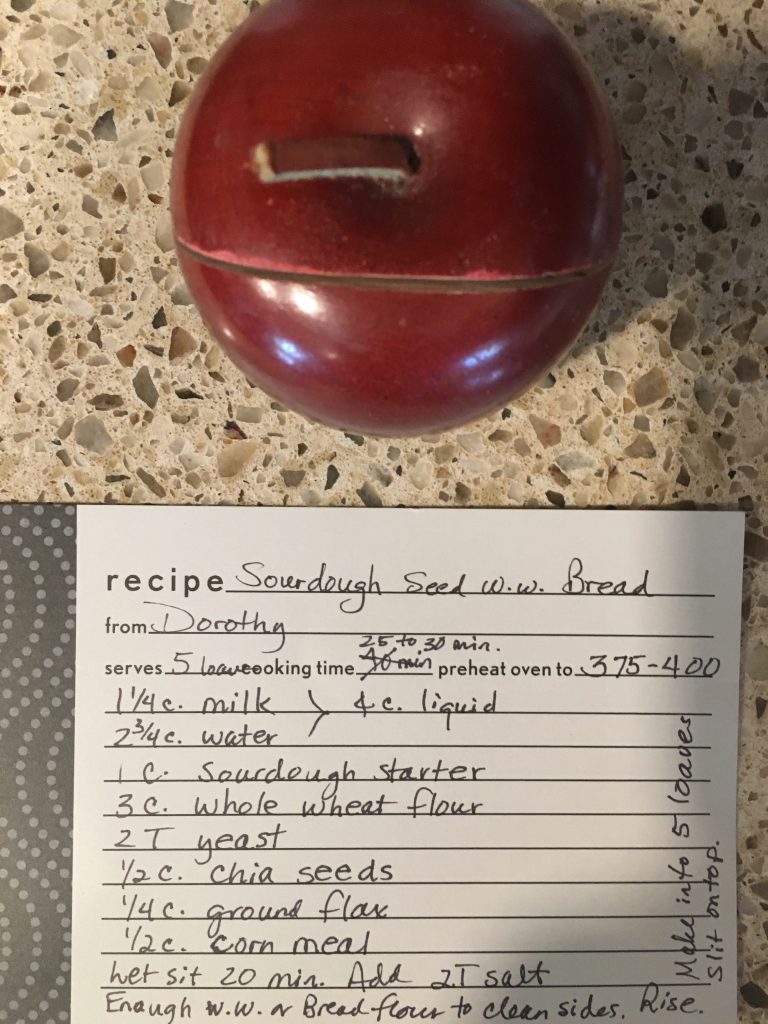 recipe Sourdough Seed w.w. Bread
from Dorothy
25 to 30 min.
serves 5 loaves cooking time 40 min preheat oven to 375-400
1 1/4 c. milk > 4 c. liquid
2 3/4 c. water
1 C. Sourdough starter
3 C. whole wheat flour
2 T yeast
1/2 c. chia seeds
1/4 c. ground flax
1/2 c. corn meal
Let sit 20 min. Add 2T salt
Enough w.w. or Bread flour to clean sides. Rise.
Make into 5 loaves
Slit on top.